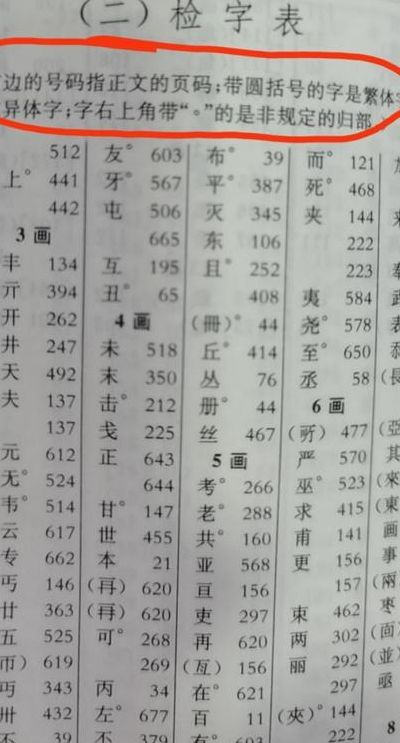 （二）检字表
边的号码指正文的页码；带圆括号的字是繁体字
异体字；字右上角带“°”的是非规定的归部
512
上° 441
442
3 画
丰 134
亓 394
开 262
井 247
天 492
夫 137
137
元 612
无° 524
韦° 514
云 617
专 662
丐 146
廿 363
五 525
帀） 619
丏 343
卅 432
不 39
友° 603
牙° 567
屯 506
665
互 195
丑° 65
4 画
未 518
末 350
击° 212
戋 225
正 643
644
甘° 147
世 455
本 21
（再） 620
（冄） 620
可° 268
269
丙 34
左° 677
不 379
布° 39
平° 387
灭 345
东 106
且° 252
408
（冊）° 44
丘° 414
丛 76
册° 44
丝 467
5 画
考° 266
老° 288
共° 160
亚 568
亘 156
吏 297
再 620
（亙） 156
在° 621
百 11
有° 603
而° 121
死° 468
夹 144
222
223
夷 584
尧° 578
至° 650
丞 58
6 画
（所） 477
严 570
巫° 523
求 415
甫 141
更 156
157
束 462
两 302
丽 292
297
（夾）° 144
222
（長
（亞
其
（來
（東
画
事
（兩
枣
（面
（並
亟
8